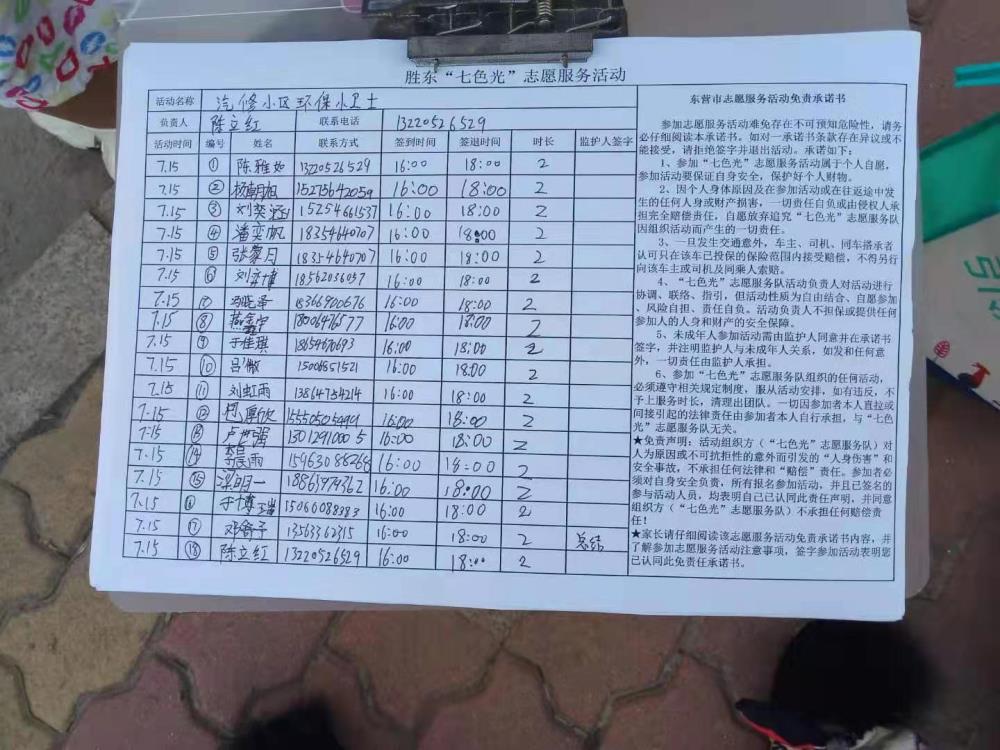 胜东“七色光”志愿服务活动
活动名称 汽修小区环保小卫士
负责人 陈立红 联系电话 13220526529
活动时间 编号 姓名 联系方式 签到时间 签退时间 时长 监护人签字
7.15 ① 陈雅如 13220526529 16:00 18:00 2
7.15 ② 杨朝旭 15275642059 16:00 18:00 2
7.15 ③ 刘奕涵 15254661537 16:00 18:00 2
7.15 ④ 潘奕帆 18354640707 16:00 18:00 2
7.15 ⑤ 张黎月 18354640707 16:00 18:00 2
7.15 ⑥ 刘奕博 18562036037 16:00 18:00 2
7.15 ⑦ 18366900676 16:00 18:00 2
7.15 ⑧ 18006476577 16:00 18:00 2
7.15 ⑨ 于佳琪 18654670693 16:00 18:00 2
7.15 ⑩ 吕微 15006551521 16:00 18:00 2
7.15 ⑪ 刘虹雨 13864754214 16:00 18:00 2
7.15 ⑫ 16:00 18:00 2
7.15 ⑬ 16:00 18:00 2
7.15 ⑭ 李晨雨 15963088268 16:00 18:00 2
7.15 ⑮ 梁明一 18863974362 16:00 18:00 2
7.15 ⑯ 于博瑞 15066088383 16:00 18:00 2
7.15 ⑰ 13563362315 16:00 18:00 2 总结
7.15 ⑱ 陈立红 13220526529 16:00 18:00 2
东营市志愿服务活动免责承诺书
参加志愿服务活动难免存在不可预知危险性，请务
必仔细阅读本承诺书。如对一承诺书条款存在异议或不
能接受，请拒绝签字并退出活动。承诺如下：
1、参加“七色光”志愿服务活动属于个人自愿，
参加活动要保证自身安全，保护好个人财物。
2、因个人身体原因及在参加活动或在往返途中发
生的任何人身或财产损害，一切责任自负或由侵权人承
担完全赔偿责任，自愿放弃追究“七色光”志愿服务队
因组织活动而产生的一切责任。
3、一旦发生交通意外，车主、司机、同车搭承者
认可只在该车已投保的保险范围内接受赔偿，不得另行
向该车主或司机及同乘人索赔。
4、“七色光”志愿服务队活动负责人对活动进行
协调、联络、指引，但活动性质为自由结合、自愿参加
、风险自担、责任自负。活动负责人不担保或提供任何
参加人的人身和财产的安全保障。
5、未成年人参加活动需由监护人同意并在承诺书
签字，并注明监护人与未成年人关系，如发和任何意
外，一切责任由监护人承担。
6、参加“七色光”志愿服务队组织的任何活动，
必须遵守相关规定制度，服从活动安排，如有违反，不
予上服务时长，清理出团队。一切因参加者本人直拉或
间接引起的法律责任由参加者本人自行承担，与“七色
光”志愿服务队无关。
★免责声明：活动组织方（“七色光”志愿服务队）对
人为原因或不可抗拒性的意外而引发的“人身伤害”和
安全事故，不承担任何法律和“赔偿”责任。参加者必
须对自身安全负责，所有报名参加活动，并且已签名的
参与活动人员，均表明自己已认同此责任声明，并同意
组织方（“七色光”志愿服务队）不承担任何赔偿责
任！
★家长请仔细阅读该志愿服务活动免责承诺书内容，并
了解参加志愿服务活动注意事项，签字参加活动表明您
已认同此免责任承诺书。